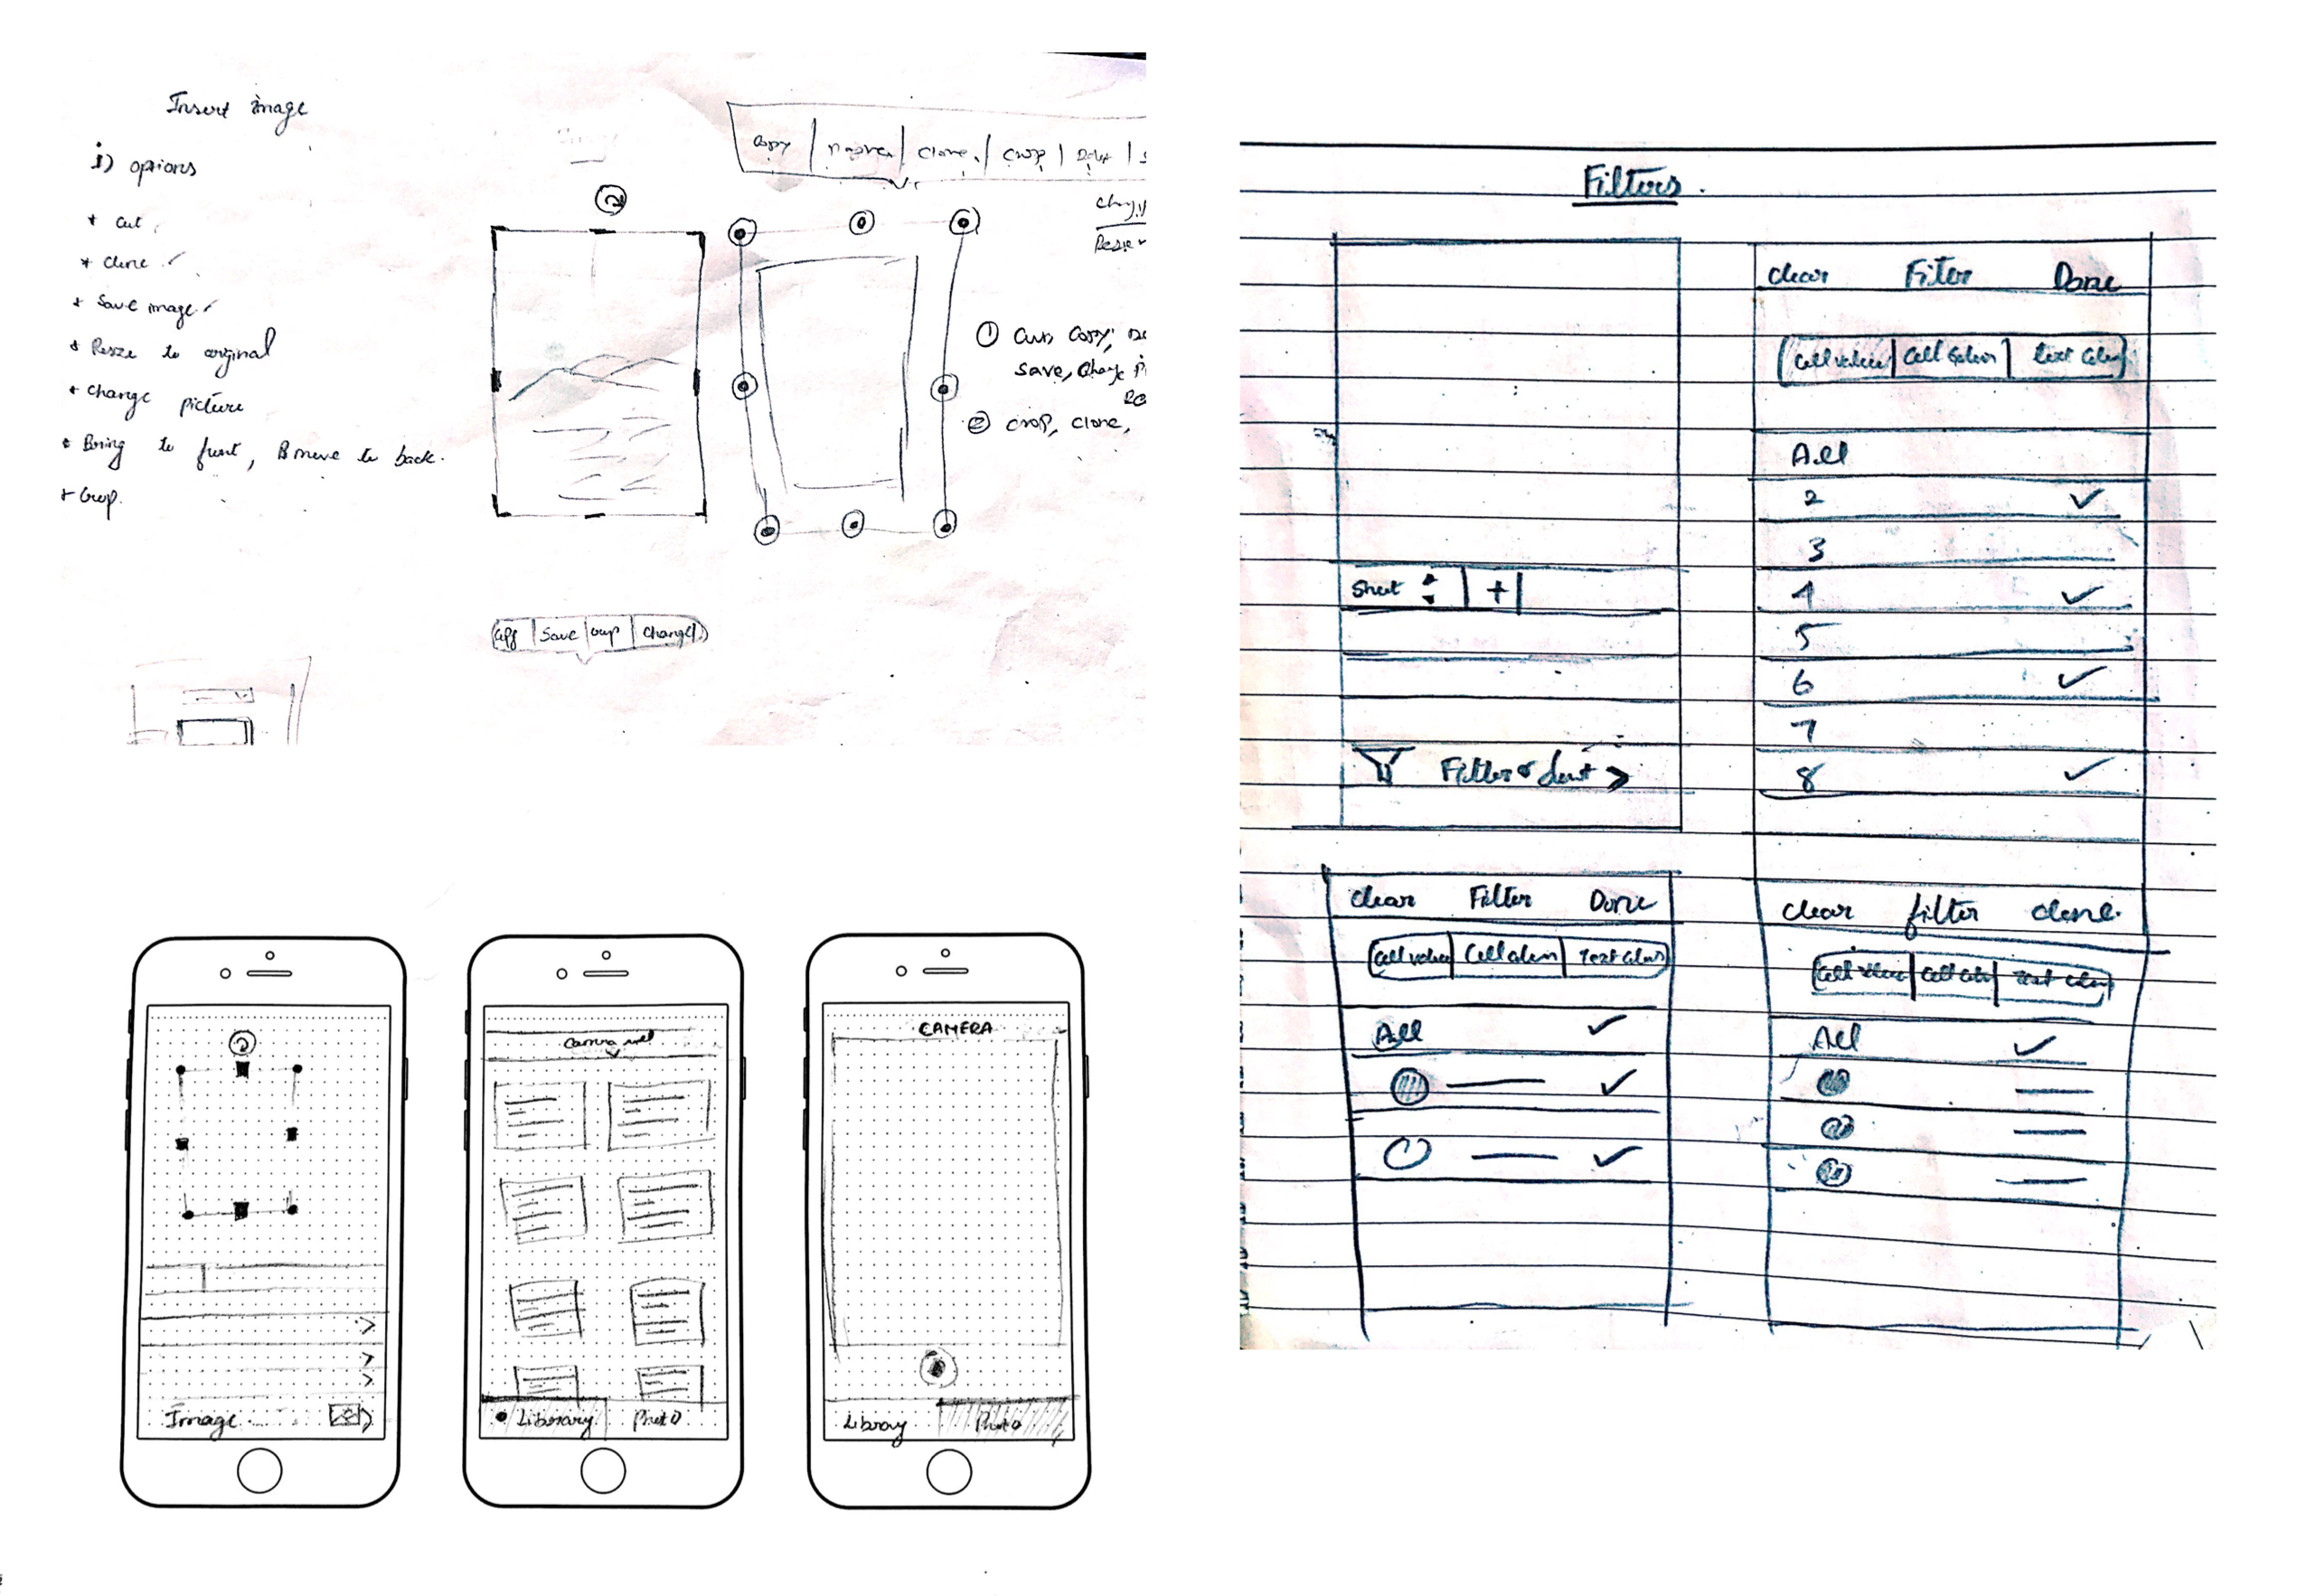 Insert image
i) options
* Cut
* Clone
* Save image
* Resize to original
* Change picture
* Bring to front, move to back.
* Crop.
Copy | | Clone | Crop |
① Cut, Copy,
Save, Change
② Crop, clone,
Copy | Save | Crop | Change
Image
Camera roll
Library Photo
CAMERA
Library Photo
Filters.
Sheet +
Filter & Sort >
Clear Filter Done
Cell value Cell Colour text Colour
All
2
3
4
5
6
7
8
Clear Filter Done
Cell value Cell Colour Text Colour
All
Clear filter done.
Cell value Cell Colour text Colour
All